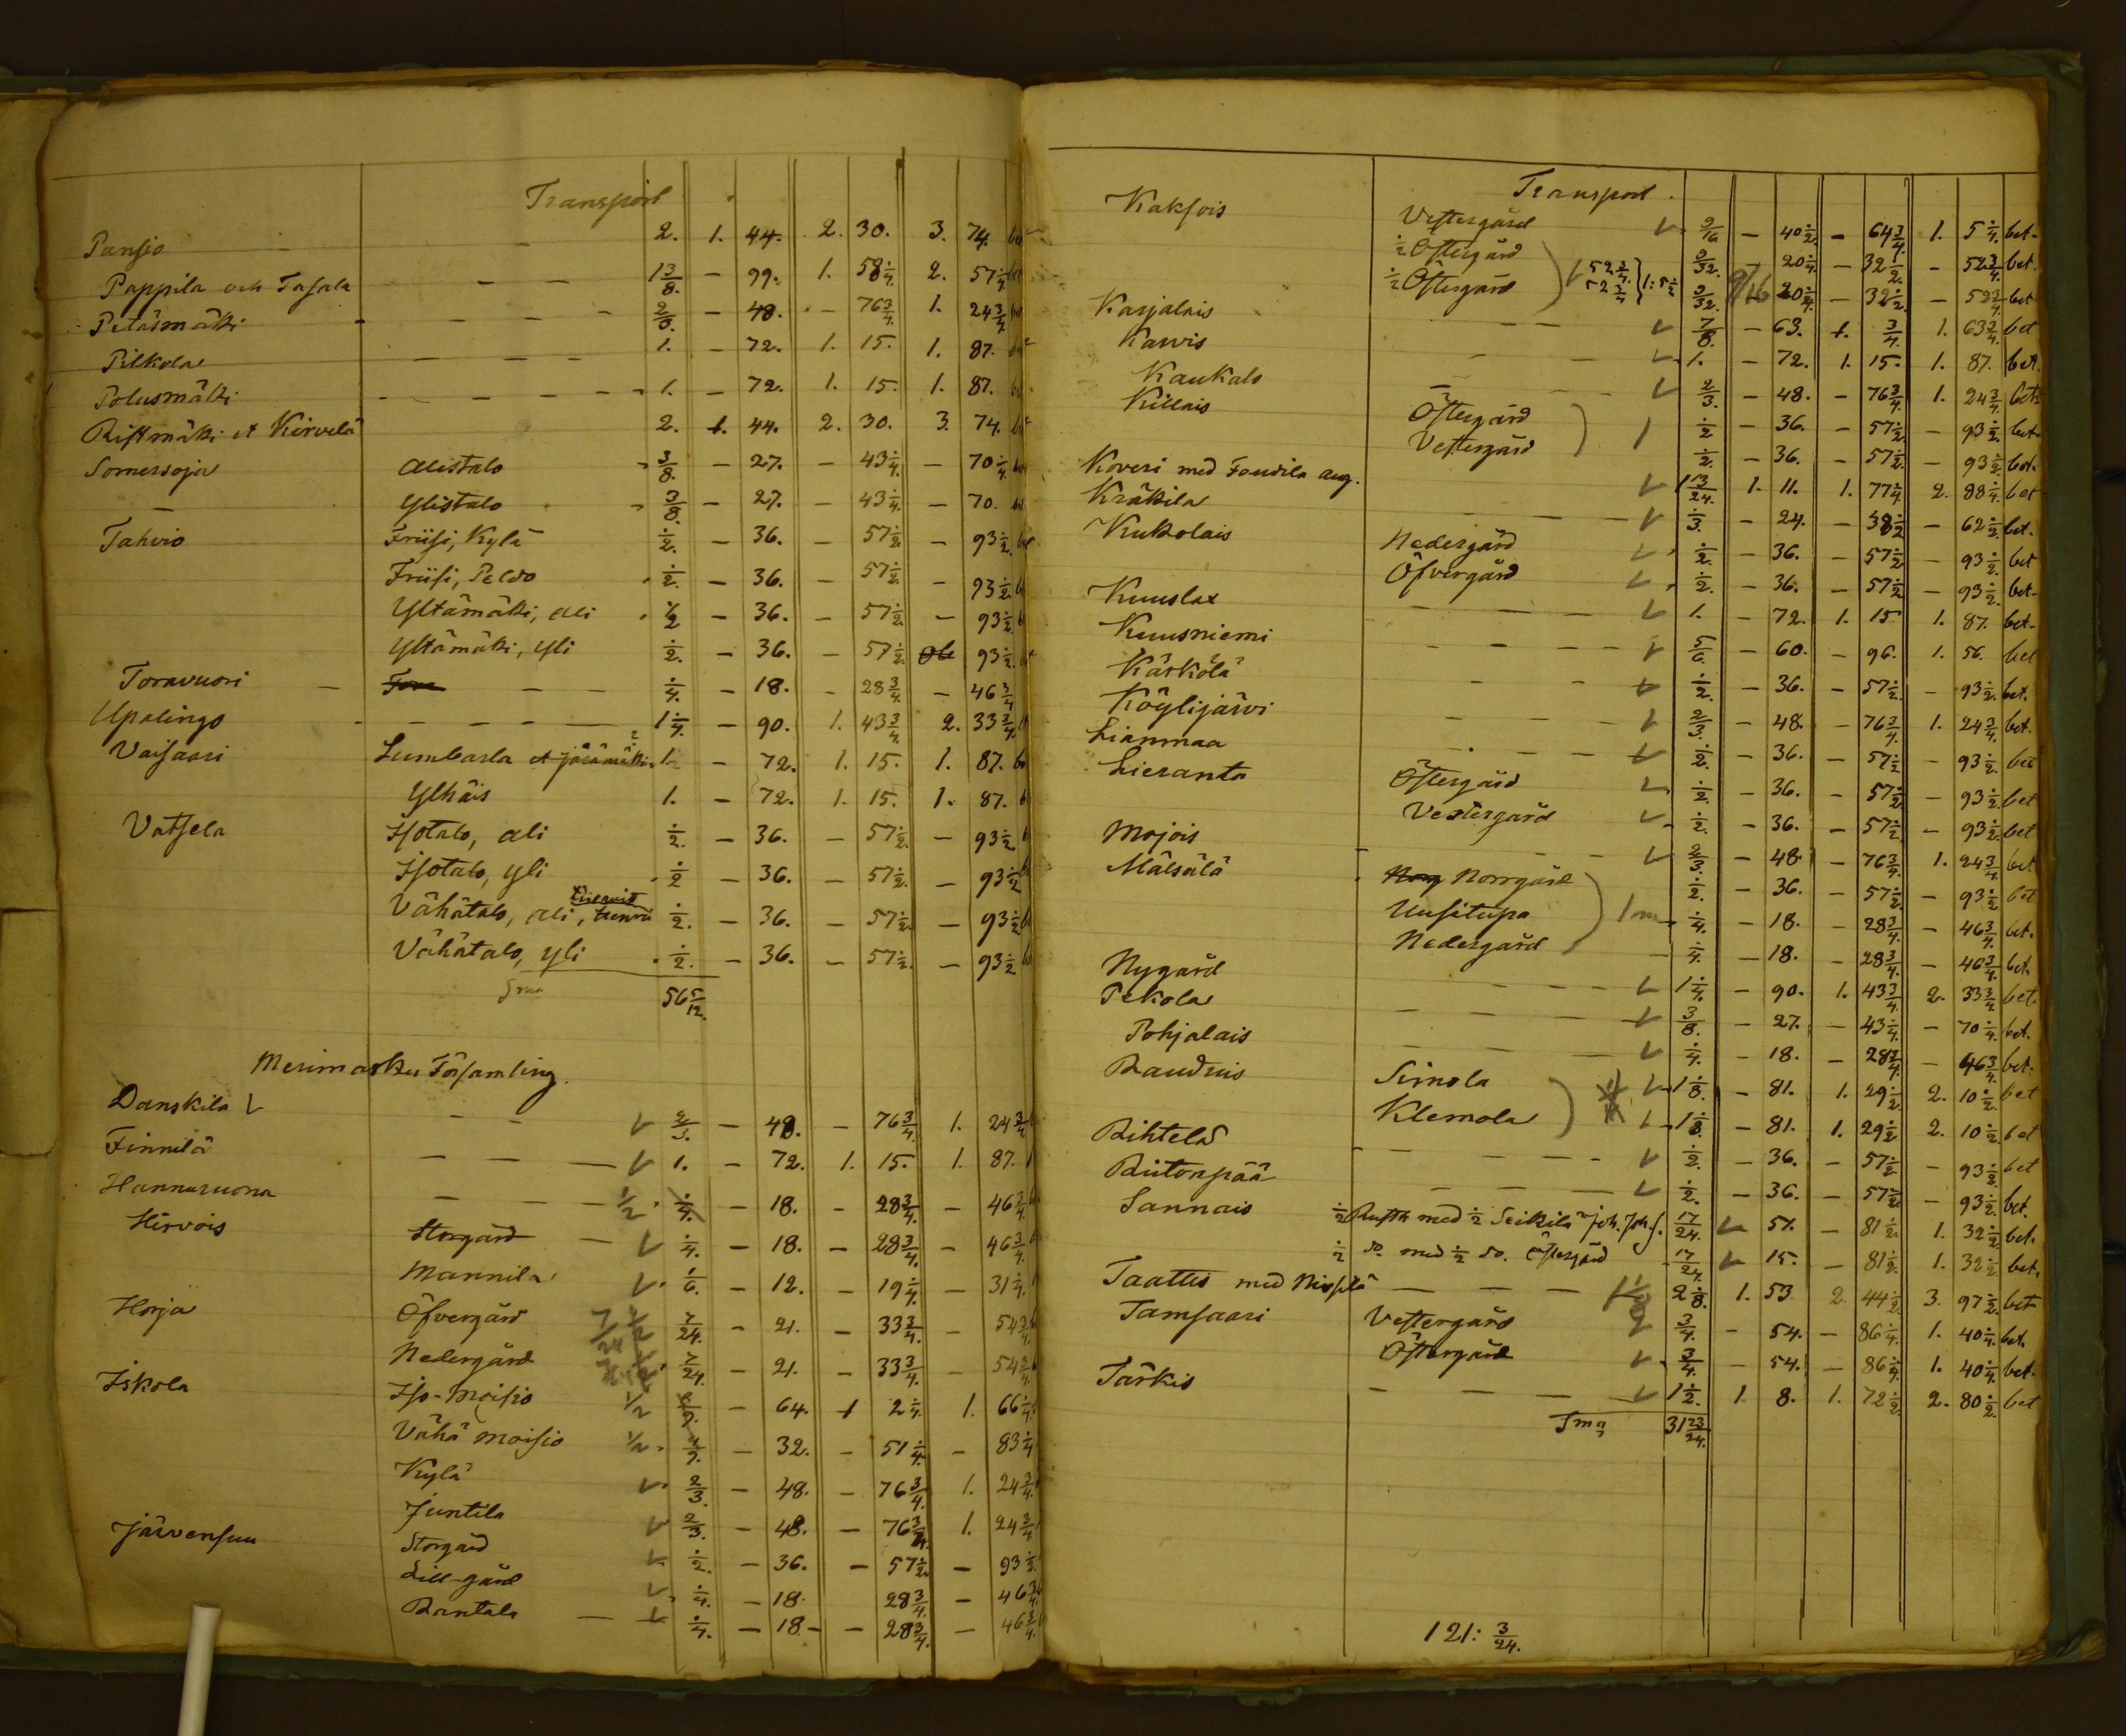 Transport
Pansio 2. 1. 44. 2. 30. 3. 74.
Pappila och Tasala — — 1 3/8. — 99. 1. 58 1/4. 2. 57 1/4
Petäsmäki — — — — 2/3. — 48. — 76 3/4. 1. 24 3/4.
Pilkola — — — — 1. — 72. 1. 15. 1. 87.
Polusmäki — — — — 1. — 72. 1. 15. 1. 87.
Ristmäki et Kirvelä 2. 1. 44. 2. 30. 3. 74.
Somersoja Alistalo 3/8. — 27. — 43 1/4. — 70 1/4.
Ylistalo 3/8. — 27. — 43 1/4. — 70.
Tahvio Friisi, Kylä 1/2. — 36. — 57 1/2. — 93 1/2.
Friisi, Peldo 1/2. — 36. — 57 1/2. — 93 1/2.
Yltämäki, ali 1/2 — 36. — 57 1/2. — 93 1/2.
Yltämäki, yli 1/2. — 36. — 57 1/2. 93 1/2.
Toravuori — — — 1/4. — 18. — 28 3/4. — 46 3/4
Upalingo — — — — 1 1/4. — 90. 1. 43 3/4. 2. 33 3/4.
Vaisaari Lumbarla et 1. — 72. 1. 15. 1. 87.
Ylhäis 1. — 72. 1. 15. 1. 87.
Vatsela Isotalo, ali 1/2. — 36. — 57 1/2. — 93 1/2
Isotalo, yli 1/2 — 36. — 57 1/2. — 93 1/2
Vähätalo, ali, 1/2. — 36. — 57 1/2. — 93 1/2
Vähätalo, yli 1/2. — 36. — 57 1/2. — 93 1/2
Sma 56 5/12.
Merimasku Församling.
Danskila — — 2/3. — 48. — 76 3/4. 1. 24 3/4
Finnilä — — — 1. — 72. 1. 15. 1. 87.
Hannuruona — — — 1/2 1/4. — 18. — 28 3/4. — 46 3/4.
Hirvois Storgård — 1/4. — 18. — 28 3/4. — 46 3/4.
Mannila 1/6. — 12. — 19 1/4. — 31 1/4.
Horja Öfvergård 7/24 1/2 7/24. — 21. — 33 3/4. — 54 3/4.
Nedergård 7/24. — 21. — 33 3/4. — 54 3/4.
Iskola Iso-moisio 1/2 8/9. — 64. 1 2 1/4. 1. 66 1/4.
Vähä moisio 1/2. 4/9. — 32. — 51 1/4. — 83 1/4
Kylä 2/3. — 48. — 76 3/4. 1. 24 3/4.
Juntila 2/3. — 48. — 76 3/4. 1. 24 3/4.
Järvensuu Storgård 1/2. — 36. — 57 1/2. — 93 1/2.
Lill-gård 1/4. — 18. 28 3/4. — 46 3/4.
Rantala — 1/4. — 18. — — 28 3/4. — 46 3/4.
Transport.
Kaksois Vestergård 9/16 — 40 1/2. — 64 3/4. 1. 5 1/4. bet.
1/2 Östergård 9/32. — 20 1/4. — 32 1/2. — 52 3/4. bet.
1/2 Östergård 52 3/4. 52 3/4 } 1: 5 1/2 9/32. 9/16 20 1/4. — 32 1/2. — 52 3/4. bet
Karjalais — — 7/8. — 63. 1. 3/4. 1. 63 3/4. bet
Karvis — — 1. — 72. 1. 15. 1. 87. bet.
Kaukalo — 2/3. — 48. — 76 3/4. 1. 24 3/4. bet
Killais Östergård 1/2 — 36. — 57 1/2. — 93 1/2. bet.
Vestergård 1/2. — 36. — 57 1/2. — 93 1/2. bet.
Koveri med Foudila aug. 1 13/24. 1. 11. 1. 77 1/4. 2. 88 1/4. bet
Kräkila — — — 1/3. — 24. — 38 1/2 — 62 1/2. bet.
Kukolais Nedergård 1/2. — 36. — 57 1/2 — 93 1/2. bet
Öfvergård 1/2. — 36. — 57 1/2 — 93 1/2. bet.
Kuuslax — — — 1. — 72. 1. 15 1. 87. bet.
Kuusniemi — — — 5/6. — 60. — 96. 1. 56. bet
Kärkölä — — 1/2. — 36. — 57 1/2. — 93 1/2. bet.
Köylijärvi — — — 2/3. — 48. — 76 3/4. 1. 24 3/4. bet.
Lianmaa — — — 1/2. — 36. — 57 1/2. — 93 1/2. bet
Lieranta Östergård 1/2. — 36. — 57 1/2. — 93 1/2. bet
Vestergård 1/2. — 36. — 57 1/2. — 93 1/2. bet
Mojois — — — 2/3. — 48. — 76 3/4. 1. 24 3/4. bet
Mälsälä Norrgård 1/2. — 36. — 57 1/2. — 93 1/2 bet
Uusitupa 1/4. — 18. — 28 3/4. — 46 3/4. bet.
Nedergård 1/4. — 18. — 28 3/4. — 46 3/4. bet.
Nygård — — — 1 1/4. — 90. 1. 43 3/4. 2. 33 3/4 bet.
Pekola — — — 3/8. — 27. — 43 1/4. — 70 1/4. bet.
Pohjalais — — — 1/4. — 18. — 28 3/4. — 46 3/4. bet.
Raudruis Simola 1 1/8. — 81. 1. 29 1/2. 2. 10 1/2. bet
Klemola 1 1/8. — 81. 1. 29 1/2 2. 10 1/2. bet
Rihtelä — — — 1/2. — 36. — 57 1/2. — 93 1/2. bet
Riitonpää — — — 1/2. — 36. — 57 1/2. — 93 1/2. bet.
Sannais 1/2 Rusth med 1/2 Seikilä Joh. Joh. s. 17/24. 51. — 81 1/2. 1. 32 1/2. bet.
1/2 do. med 1/2 do. Östergård 17/24 15. — 81 1/2. 1. 32 1/2 bet.
Taattis med Nissilä — — — 2 1/8. 1. 53 2. 44 1/2. 3. 97 1/2. bet
Tamsaari Vestergård 3/4. — 54. — 86 1/4. 1. 40 1/4. bet.
Östergård 3/4. — 54. — 86 1/4. 1. 40 1/4. bet.
Tärkis — — — 1 1/2. 1. 8. 1. 72 1/2. 2. 80 1/2. bet
Sma 31 23/24.
121: 3/24.